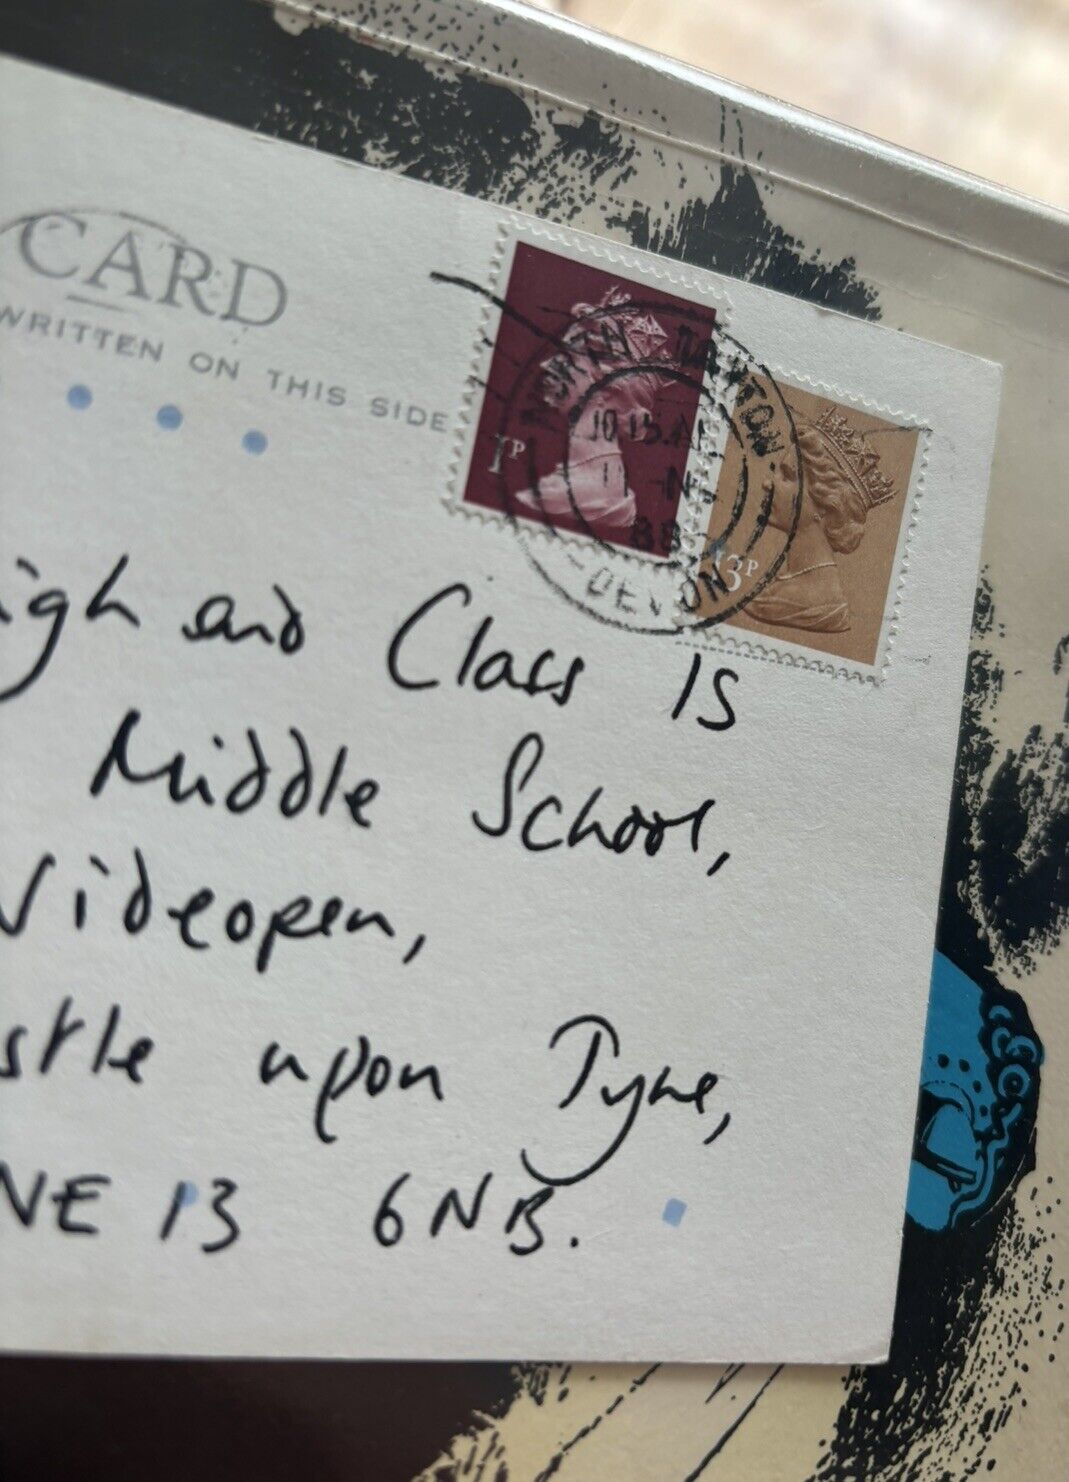 CARD
WRITTEN ON THIS SIDE
1P
NORTH TAWTON
10 15 AM
11 NO
88
DEVON
13P
igh and Class 1S
Middle School,
Wideopen,
stle upon Tyne,
NE 13 6NB.